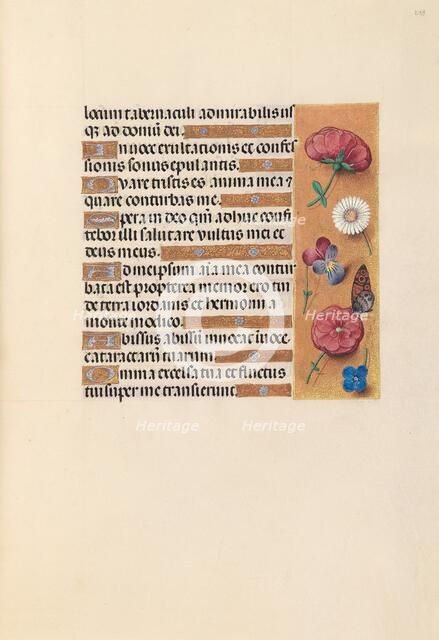 locum tabernaculi admirabilis us
q3 ad domū dei.
In uoce exultationis et confes
sionis sonus epulantis.
Quare tristis es anima mea ⁊
quare conturbas me.
Spera in deo qm̄ adhuc confi
tebor illi salutare vultus mei et
deus meus.
Ad me ipsum aīa mea contur
bata est propterea memor ero tui
de terra iordanis et hermonim a
monte modico.
Abissus abissū inuocat in uoce
cataractarū tuarum.
Omnia excelsa tua et fluctus
tui super me transierunt.
Heritage Heritage
Heritage Heritage
Heritage Heritage